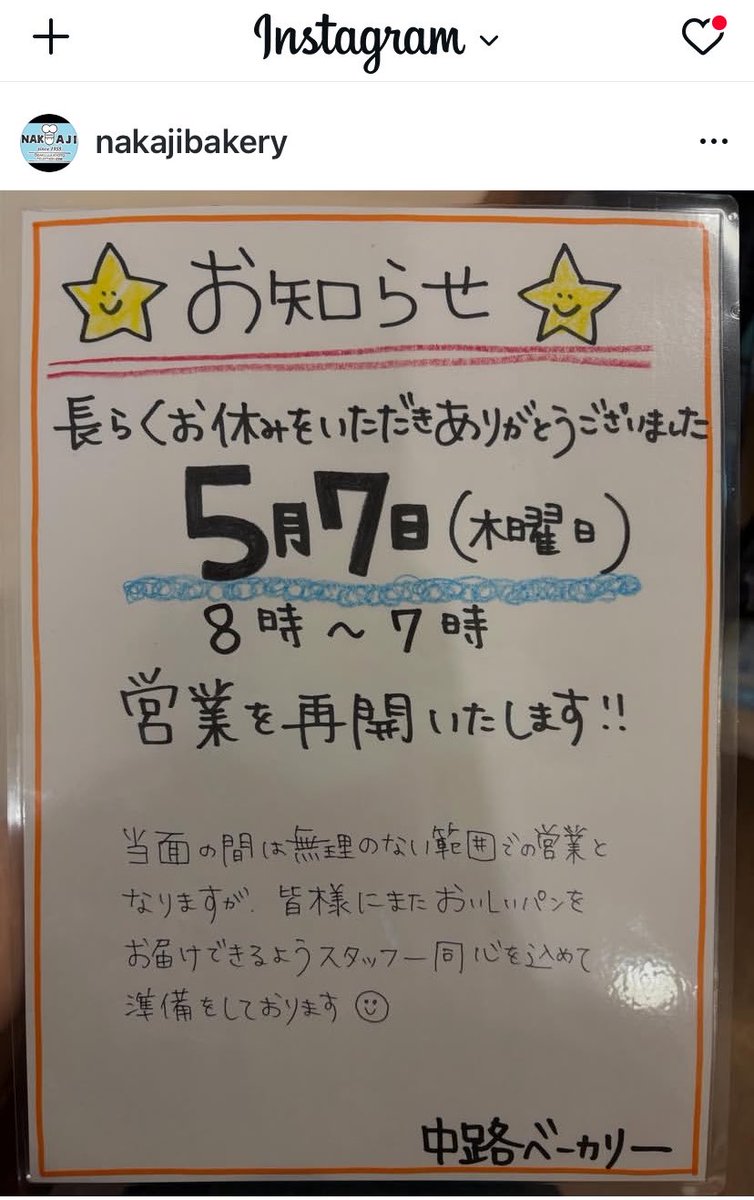 Instagram
NAKAJI
since 1955
nakajibakery
お知らせ
長らくお休みをいただきありがとうございました
5月7日(木曜日)
8時～7時
営業を再開いたします!!
当面の間は無理のない範囲での営業と
なりますが、皆様にまたおいしいパンを
お届けできるようスタッフ一同心を込めて
準備をしております
中路ベーカリー